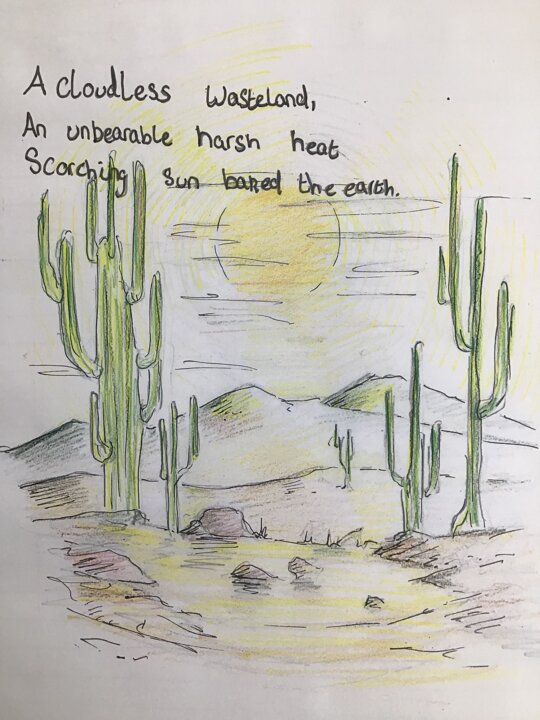 A cloudless wasteland,
An unbearable harsh heat
Scorching sun baked the earth.